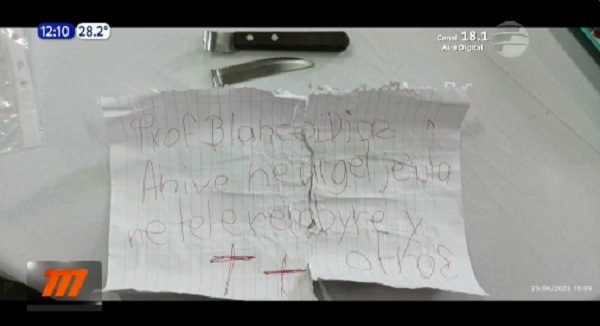 12:10 28.2°
Canal 18.1
Aire Digital
Prof Blanca Diaz
Anive ne
ne tele rembyre y
otros
23/06/2023 15:09